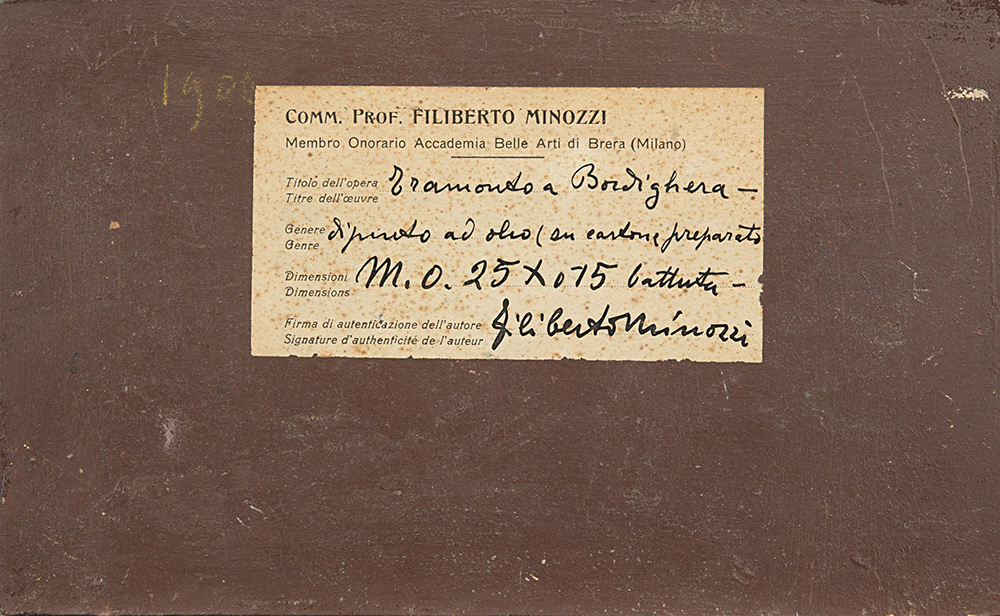 1900
COMM. PROF. FILIBERTO MINOZZI
Membro Onorario Accademia Belle Arti di Brera (Milano)
Titolo dell'opera Tramonto a Bordighera –
Titre dell'œuvre
Genere dipinto ad olio (su cartone preparato
Genre
Dimensioni M. 0. 25 X 0 15 battuta –
Dimensions
Firma di autenticazione dell'autore Filiberto Minozzi
Signature d'authenticité de l'auteur